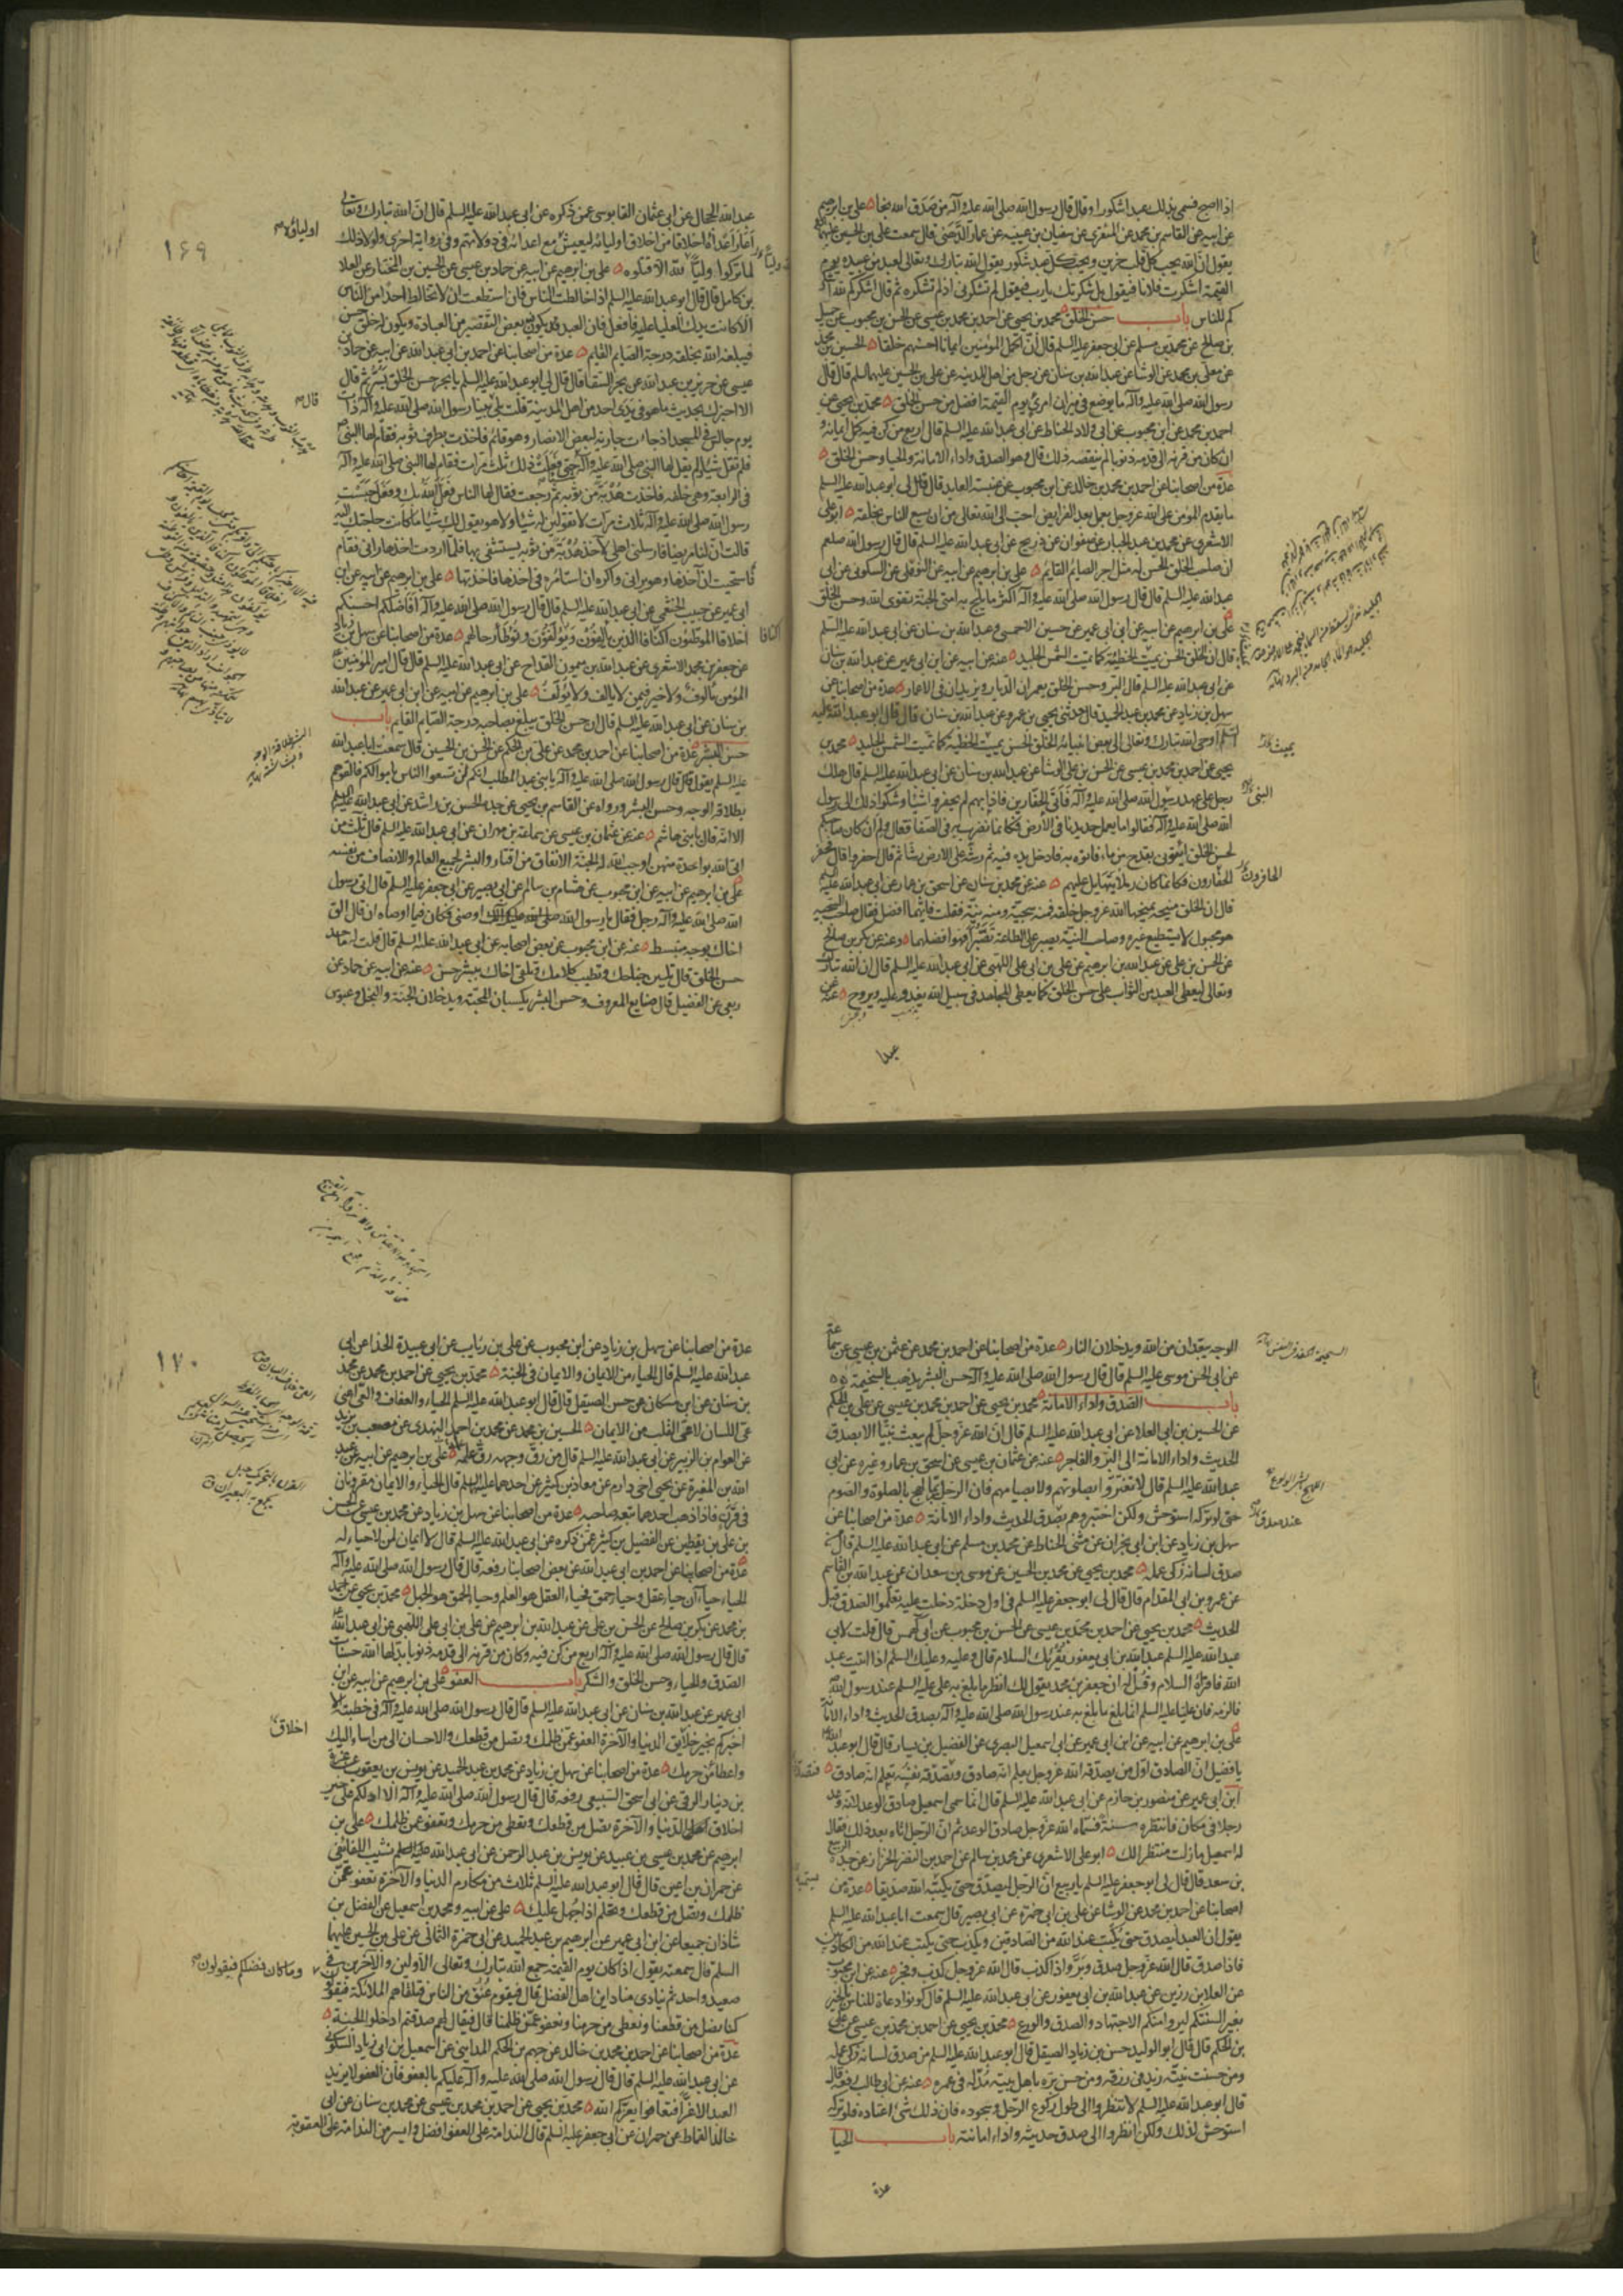 اذا اصبح فسمى بذلك عبدا شكورا وقال قال رسول الله صلى الله عليه وآله من صدق الله نجا علي بن ابرهيم
عن ابيه عن القاسم بن محمد عن المنقري عن سفيان بن عيينه عن عمار الدهني قال سمعت علي بن الحسين عليهما
يقول ان الله يحب كل قلب حزين ويحب كل عبد شكور يقول الله تبارك وتعالى لعبد من عبيده يوم
القيمة اشكرت فلانا فيقول بل شكرتك يا رب فيقول لم تشكرني اذ لم تشكره ثم قال اشكركم لله اشكر
كم للناس باب حسن الخلق محمد بن يحيى عن احمد بن محمد بن عيسى عن الحسن بن محبوب عن جميل
بن صالح عن محمد بن مسلم عن ابي جعفر عليه السلم قال ان اكمل المؤمنين ايمانا احسنهم خلقا الحسين بن محمد
عن معلى بن محمد عن الوشا عن عبد الله بن سنان عن رجل من اهل المدينه عن علي بن الحسين عليهما السلم قال قال
رسول الله صلى الله عليه وآله ما يوضع في ميزان امرئ يوم القيمة افضل من حسن الخلق محمد بن يحيى عن
احمد بن محمد عن ابن محبوب عن ابي ولاد الحناط عن ابي عبد الله عليه السلم قال اربع من كن فيه كمل ايمانه و
ان كان من قرنه الى قدمه ذنوبا لم ينقصه ذلك قال وهو الصدق واداء الامانة والحيا وحسن الخلق
عدة من اصحابنا عن احمد بن محمد بن خالد عن ابن محبوب عن عنبسة العابد قال قال لي ابو عبد الله عليه السلم
ما يقدم المؤمن على الله عز وجل بعمل بعد الفرايض احب الى الله تعالى من ان يسع الناس بخلقه ابو علي
الاشعري عن محمد بن عبد الجبار عن صفوان عن ذريح عن ابي عبد الله عليه السلم قال قال رسول الله صلعم
ان صاحب الخلق الحسن له مثل اجر الصايم القايم علي بن ابرهيم عن ابيه عن النوفلي عن السكوني عن ابي
عبد الله عليه السلم قال قال رسول الله صلى الله عليه وآله اكثر ما تلج به امتي الجنة تقوى الله وحسن الخلق
علي بن ابرهيم عن ابيه عن ابن ابي عمير عن حسين الاحمسي وعبد الله بن سنان عن ابي عبد الله عليه السلم
قال ان الخلق الحسن يميث الخطيئة كما تميث الشمس الجليد عنه عن ابيه عن ابن ابي عمير عن عبد الله بن سنان
عن ابي عبد الله عليه السلم قال البر وحسن الخلق يعمران الديار ويزيدان في الاعمار عدة من اصحابنا عن
سهل بن زياد عن محمد بن عبد الحميد قال حدثني يحيى بن عمرو عن عبد الله بن سنان قال قال ابو عبد الله عليه
السلم اوحى الله تبارك وتعالى الى بعض انبيائه الخلق الحسن يميث الخطيئة كما تميث الشمس الجليد محمد بن
يحيى عن احمد بن محمد بن عيسى عن الحسن بن علي الوشا عن عبد الله بن سنان عن ابي عبد الله عليه السلم قال هلك
رجل على عهد رسول الله صلى الله عليه وآله فاتى الحفارين فاذا بهم لم يحفروا شيئا وشكوا ذلك الى رسول
الله صلى الله عليه وآله فقالوا ما يعمل حديدنا في الارض فكانما نضرب به في الصفا فقال ولم ان كان صاحبكم
لحسن الخلق ايتوني بقدح من ماء فاتوه به فادخل يده فيه ثم رشه على الارض رشا ثم قال احفروا قال فحفر
الحفارون فكانما كان رملا يتهايل عليهم عنه عن محمد بن سنان عن اسحق بن عمار عن ابي عبد الله عليه السلم
قال ان الخلق منيحة يمنحها الله عز وجل خلقه فمنه سجية ومنه نية فقلت فايتهما افضل فقال صاحب السجية
هو مجبول لا يستطيع غيره وصاحب النية يصبر على الطاعة تصبرا فهو افضلهما وعنه عن بكر بن صالح
عن الحسن بن علي عن عبد الله بن ابرهيم عن علي بن ابي علي اللهبي عن ابي عبد الله عليه السلم قال ان الله تبارك
وتعالى ليعطي العبد من الثواب على حسن الخلق كما يعطي المجاهد في سبيل الله يغدو عليه ويروح عنه عن
يميث
النبي
الحافرون
عبدا
عبد الله الحجال عن ابي عثمان القابوسي عمن ذكره عن ابي عبد الله عليه السلم قال ان الله تبارك وتعالى
اعار اعداءه اخلاقا من اخلاق اوليائه ليعيش مع اعدائه في دولاتهم وفي رواية اخرى ولولا ذلك
لما تركوا وليا لله الا قتلوه علي بن ابرهيم عن ابيه عن حماد بن عيسى عن الحسين بن المختار عن العلا
بن كامل قال قال ابو عبد الله عليه السلم اذا خالطت الناس فان استطعت ان لا تخالط احدا من الناس
الا كانت يدك العليا عليه فافعل فان العبد قد يكون فيه بعض التقصير من العبادة ويكون له خلق حسن
فيبلغه الله بخلقه درجة الصايم القايم عدة من اصحابنا عن احمد بن ابي عبد الله عن ابيه عن حماد بن
عيسى عن حريز بن عبد الله عن بحر السقا قال قال لي ابو عبد الله عليه السلم يا بحر حسن الخلق يسر ثم قال
الا اخبرك بحديث ما هو في يدي احد من اهل المدينة قلت بلى قال بينا رسول الله صلى الله عليه وآله ذات
يوم جالس في المسجد اذ جاءت جارية لبعض الانصار وهو قائم فاخذت بطرف ثوبه فقام لها النبي
فلم تقل شيئا ولم يقل لها النبي صلى الله عليه وآله شيئا حتى فعلت ذلك ثلث مرات فقام لها النبي صلى الله عليه وآله
في الرابعة وهي خلفه فاخذت هدبة من ثوبه ثم رجعت فقال لها الناس فعل الله بك وفعل حبست
رسول الله صلى الله عليه وآله ثلاث مرات لا تقولين له شيئا ولا هو يقول لك شيئا ما كانت حاجتك اليه
قالت ان لنا مريضا فارسلني اهلي لآخذ هدبة من ثوبه يستشفي بها فلما اردت اخذها رآني فقام
فاستحييت ان آخذها وهو يراني واكره ان استامره في اخذها فاخذتها علي بن ابرهيم عن ابيه عن ابن
ابي عمير عن حبيب الخثعمي عن ابي عبد الله عليه السلم قال قال رسول الله صلى الله عليه وآله افاضلكم احسنكم
اخلاقا الموطئون اكنافا الذين يألفون ويؤلفون وتوطأ رحالهم عدة من اصحابنا عن سهل بن زياد
عن جعفر بن محمد الاشعري عن عبد الله بن ميمون القداح عن ابي عبد الله عليه السلم قال قال امير المؤمنين
المؤمن مألوف ولا خير فيمن لا يألف ولا يؤلف علي بن ابرهيم عن ابيه عن ابن ابي عمير عن عبد الله
بن سنان عن ابي عبد الله عليه السلم قال ان حسن الخلق يبلغ بصاحبه درجة الصايم القايم باب
حسن البشر عدة من اصحابنا عن احمد بن محمد عن علي بن الحكم عن الحسن بن الحسين قال سمعت ابا عبد الله
عليه السلم يقول قال رسول الله صلى الله عليه وآله يا بني عبد المطلب انكم لن تسعوا الناس باموالكم فالقوهم
بطلاقة الوجه وحسن البشر ورواه عن القاسم بن يحيى عن جده الحسن بن راشد عن ابي عبد الله عليه السلم
الا انه قال يا بني هاشم عنه عن عثمان بن عيسى عن سماعة بن مهران عن ابي عبد الله عليه السلم قال ثلث من
اتى الله بواحدة منهن اوجب الله له الجنة الانفاق من اقتار والبشر لجميع العالم والانصاف من نفسه
علي بن ابرهيم عن ابيه عن ابن محبوب عن هشام بن سالم عن ابي بصير عن ابي جعفر عليه السلم قال اتى رسول
الله صلى الله عليه وآله رجل فقال يا رسول الله اوصني فكان فيما اوصاه ان قال الق
اخاك بوجه منبسط عنه عن ابن محبوب عن بعض اصحابه عن ابي عبد الله عليه السلم قال قلت له ما حد
حسن الخلق قال تلين جناحك وتطيب كلامك وتلقى اخاك ببشر حسن عنه عن ابيه عن حماد عن
ربعي عن الفضيل قال صنايع المعروف وحسن البشر يكسبان المحبة ويدخلان الجنة والبخل وعبوس
اوليائه
١٦٩
قال
اكنافا
الوجه يبعدان من الله ويدخلان النار عدة من اصحابنا عن احمد بن محمد عن عثمن بن عيسى عن سماعة
عن ابي الحسن موسى عليه السلم قال قال رسول الله صلى الله عليه وآله حسن البشر يذهب بالسخيمة
باب الصدق واداء الامانة محمد بن يحيى عن احمد بن محمد بن عيسى عن علي بن الحكم
عن الحسين بن ابي العلا عن ابي عبد الله عليه السلم قال ان الله عز وجل لم يبعث نبيا الا بصدق
الحديث واداء الامانة الى البر والفاجر عنه عن عثمان بن عيسى عن اسحق بن عمار وغيره عن ابي
عبد الله عليه السلم قال لا تغتروا بصلوتهم ولا بصيامهم فان الرجل ربما لهج بالصلوة والصوم
حتى لو تركه استوحش ولكن اختبروهم بصدق الحديث واداء الامانة عدة من اصحابنا عن
سهل بن زياد عن ابن ابي نجران عن مثنى الحناط عن محمد بن مسلم عن ابي عبد الله عليه السلم قال من
صدق لسانه زكى عمله محمد بن يحيى عن محمد بن الحسين عن موسى بن سعدان عن عبد الله بن القاسم
عن عمرو بن ابي المقدام قال قال لي ابو جعفر عليه السلم في اول دخلة دخلت عليه تعلموا الصدق قبل
الحديث محمد بن يحيى عن احمد بن محمد بن عيسى عن الحسن بن محبوب عن ابي كهمس قال قلت لابي
عبد الله عليه السلم عبد الله بن ابي يعفور يقرئك السلام قال وعليه وعليك السلم اذا اتيت عبد
الله فاقرأه السلام وقل له ان جعفر بن محمد يقول لك انظر ما بلغ به علي عليه السلم عند رسول الله
فالزمه فان عليا عليه السلم انما بلغ ما بلغ به عند رسول الله صلى الله عليه وآله بصدق الحديث واداء الامانة
علي بن ابرهيم عن ابيه عن ابن ابي عمير عن ابي اسمعيل البصري عن الفضيل بن يسار قال قال ابو عبد الله
يا فضيل ان الصادق اول من يصدقه الله عز وجل يعلم انه صادق وتصدقه نفسه تعلم انه صادق
ابن ابي عمير عن منصور بن حازم عن ابي عبد الله عليه السلم قال انما سمي اسمعيل صادق الوعد لانه وعد
رجلا في مكان فانتظره سنة فسماه الله عز وجل صادق الوعد ثم ان الرجل اتاه بعد ذلك فقال
له اسمعيل ما زلت منتظرا لك ابو علي الاشعري عن محمد بن سالم عن احمد بن النضر الخزاز عن جده الربيع
بن سعد قال قال لي ابو جعفر عليه السلم يا ربيع ان الرجل ليصدق حتى يكتبه الله صديقا عدة من
اصحابنا عن احمد بن محمد عن الوشا عن علي بن ابي حمزة عن ابي بصير قال سمعت ابا عبد الله عليه السلم
يقول ان العبد ليصدق حتى يكتب عند الله من الصادقين ويكذب حتى يكتب عند الله من الكاذبين
فاذا صدق قال الله عز وجل صدق وبر واذا كذب قال الله عز وجل كذب وفجر عنه عن ابن محبوب
عن العلا بن رزين عن عبد الله بن ابي يعفور عن ابي عبد الله عليه السلم قال كونوا دعاة للناس بالخير
بغير السنتكم ليروا منكم الاجتهاد والصدق والورع محمد بن يحيى عن احمد بن محمد بن عيسى عن علي
بن الحكم قال قال ابو الوليد حسن بن زياد الصيقل قال ابو عبد الله عليه السلم من صدق لسانه زكى عمله
ومن حسنت نيته زيد في رزقه ومن حسن بره باهل بيته مد له في عمره عنه عن ابي طالب رفعه قال
قال ابو عبد الله عليه السلم لا تنظروا الى طول ركوع الرجل وسجوده فان ذلك شئ اعتاده فلو تركه
استوحش لذلك ولكن انظروا الى صدق حديثه واداء امانته باب الحيا
عدة
عدة من اصحابنا عن سهل بن زياد عن ابن محبوب عن علي بن رئاب عن ابي عبيدة الحذا عن ابي
عبد الله عليه السلم قال الحياء من الايمان والايمان في الجنة محمد بن يحيى عن احمد بن محمد عن محمد
بن سنان عن ابن مسكان عن حسن الصيقل قال قال ابو عبد الله عليه السلم الحياء والعفاف والعي اعني
عي اللسان لا عي القلب من الايمان الحسين بن محمد عن محمد بن احمد النهدي عن مصعب بن يزيد
عن العوام بن الزبير عن ابي عبد الله عليه السلم قال من رق وجهه رق علمه علي بن ابرهيم عن ابيه عن عبد
الله بن المغيرة عن يحيى اخي دارم عن معاذ بن كثير عن احدهما عليه السلم قال الحياء والايمان مقرونان
في قرن فاذا ذهب احدهما تبعه صاحبه عدة من اصحابنا عن سهل بن زياد عن محمد بن عيسى عن الحسن
بن علي بن يقطين عن الفضيل بن كثير عمن ذكره عن ابي عبد الله عليه السلم قال لا ايمان لمن لا حياء له
عدة من اصحابنا عن احمد بن ابي عبد الله عن بعض اصحابنا رفعه قال قال رسول الله صلى الله عليه وآله
الحياء حياءان حياء عقل وحياء حمق فحياء العقل هو العلم وحياء الحمق هو الجهل محمد بن يحيى عن احمد
بن محمد عن بكر بن صالح عن الحسن بن علي عن عبد الله بن ابرهيم عن علي بن ابي علي اللهبي عن ابي عبد الله
قال قال رسول الله صلى الله عليه وآله اربع من كن فيه وكان من قرنه الى قدمه ذنوبا بدلها الله حسنات
الصدق والحياء وحسن الخلق والشكر باب العفو علي بن ابرهيم عن ابيه عن ابن
ابي عمير عن عبد الله بن سنان عن ابي عبد الله عليه السلم قال قال رسول الله صلى الله عليه وآله في خطبته الا
اخبركم بخير خلايق الدنيا والآخرة العفو عمن ظلمك وتصل من قطعك والاحسان الى من اساء اليك
واعطاء من حرمك عدة من اصحابنا عن سهل بن زياد عن محمد بن عبد الحميد عن يونس بن يعقوب عن غرة
بن دينار الرقي عن ابي اسحق السبيعي رفعه قال قال رسول الله صلى الله عليه وآله الا ادلكم على خير
اخلاق الدنيا والآخرة تصل من قطعك وتعطي من حرمك وتعفو عمن ظلمك علي بن
ابرهيم عن محمد بن عيسى بن عبيد عن يونس بن عبد الرحمن عن ابي عبد الله نشيب اللفائفي
عن حمران بن اعين قال قال ابو عبد الله عليه السلم ثلاث من مكارم الدنيا والآخرة تعفو عمن
ظلمك وتصل من قطعك وتحلم اذا جهل عليك علي عن ابيه ومحمد بن اسمعيل عن الفضل بن
شاذان جميعا عن ابن ابي عمير عن ابرهيم بن عبد الحميد عن ابي حمزة الثمالي عن علي بن الحسين عليهما
السلم قال سمعته يقول اذا كان يوم القيمة جمع الله تبارك وتعالى الاولين والآخرين في
صعيد واحد ثم ينادي مناد اين اهل الفضل قال فيقوم عنق من الناس فتلقاهم الملائكة فيقولون
كنا نصل من قطعنا ونعطي من حرمنا ونعفو عمن ظلمنا قال فيقال لهم صدقتم ادخلوا الجنة
عدة من اصحابنا عن احمد بن محمد بن خالد عن جهم بن الحكم المدايني عن اسمعيل بن ابي زياد السكوني
عن ابي عبد الله عليه السلم قال قال رسول الله صلى الله عليه وآله عليكم بالعفو فان العفو لا يزيد
العبد الا عزا فتعافوا يعزكم الله محمد بن يحيى عن احمد بن محمد بن عيسى عن محمد بن سنان عن ابي
خالد القماط عن حمران عن ابي جعفر عليه السلم قال الندامة على العفو افضل وايسر من الندامة على العقوبة
١٧٠
اخلاق
وما كان فضلكم فيقولون